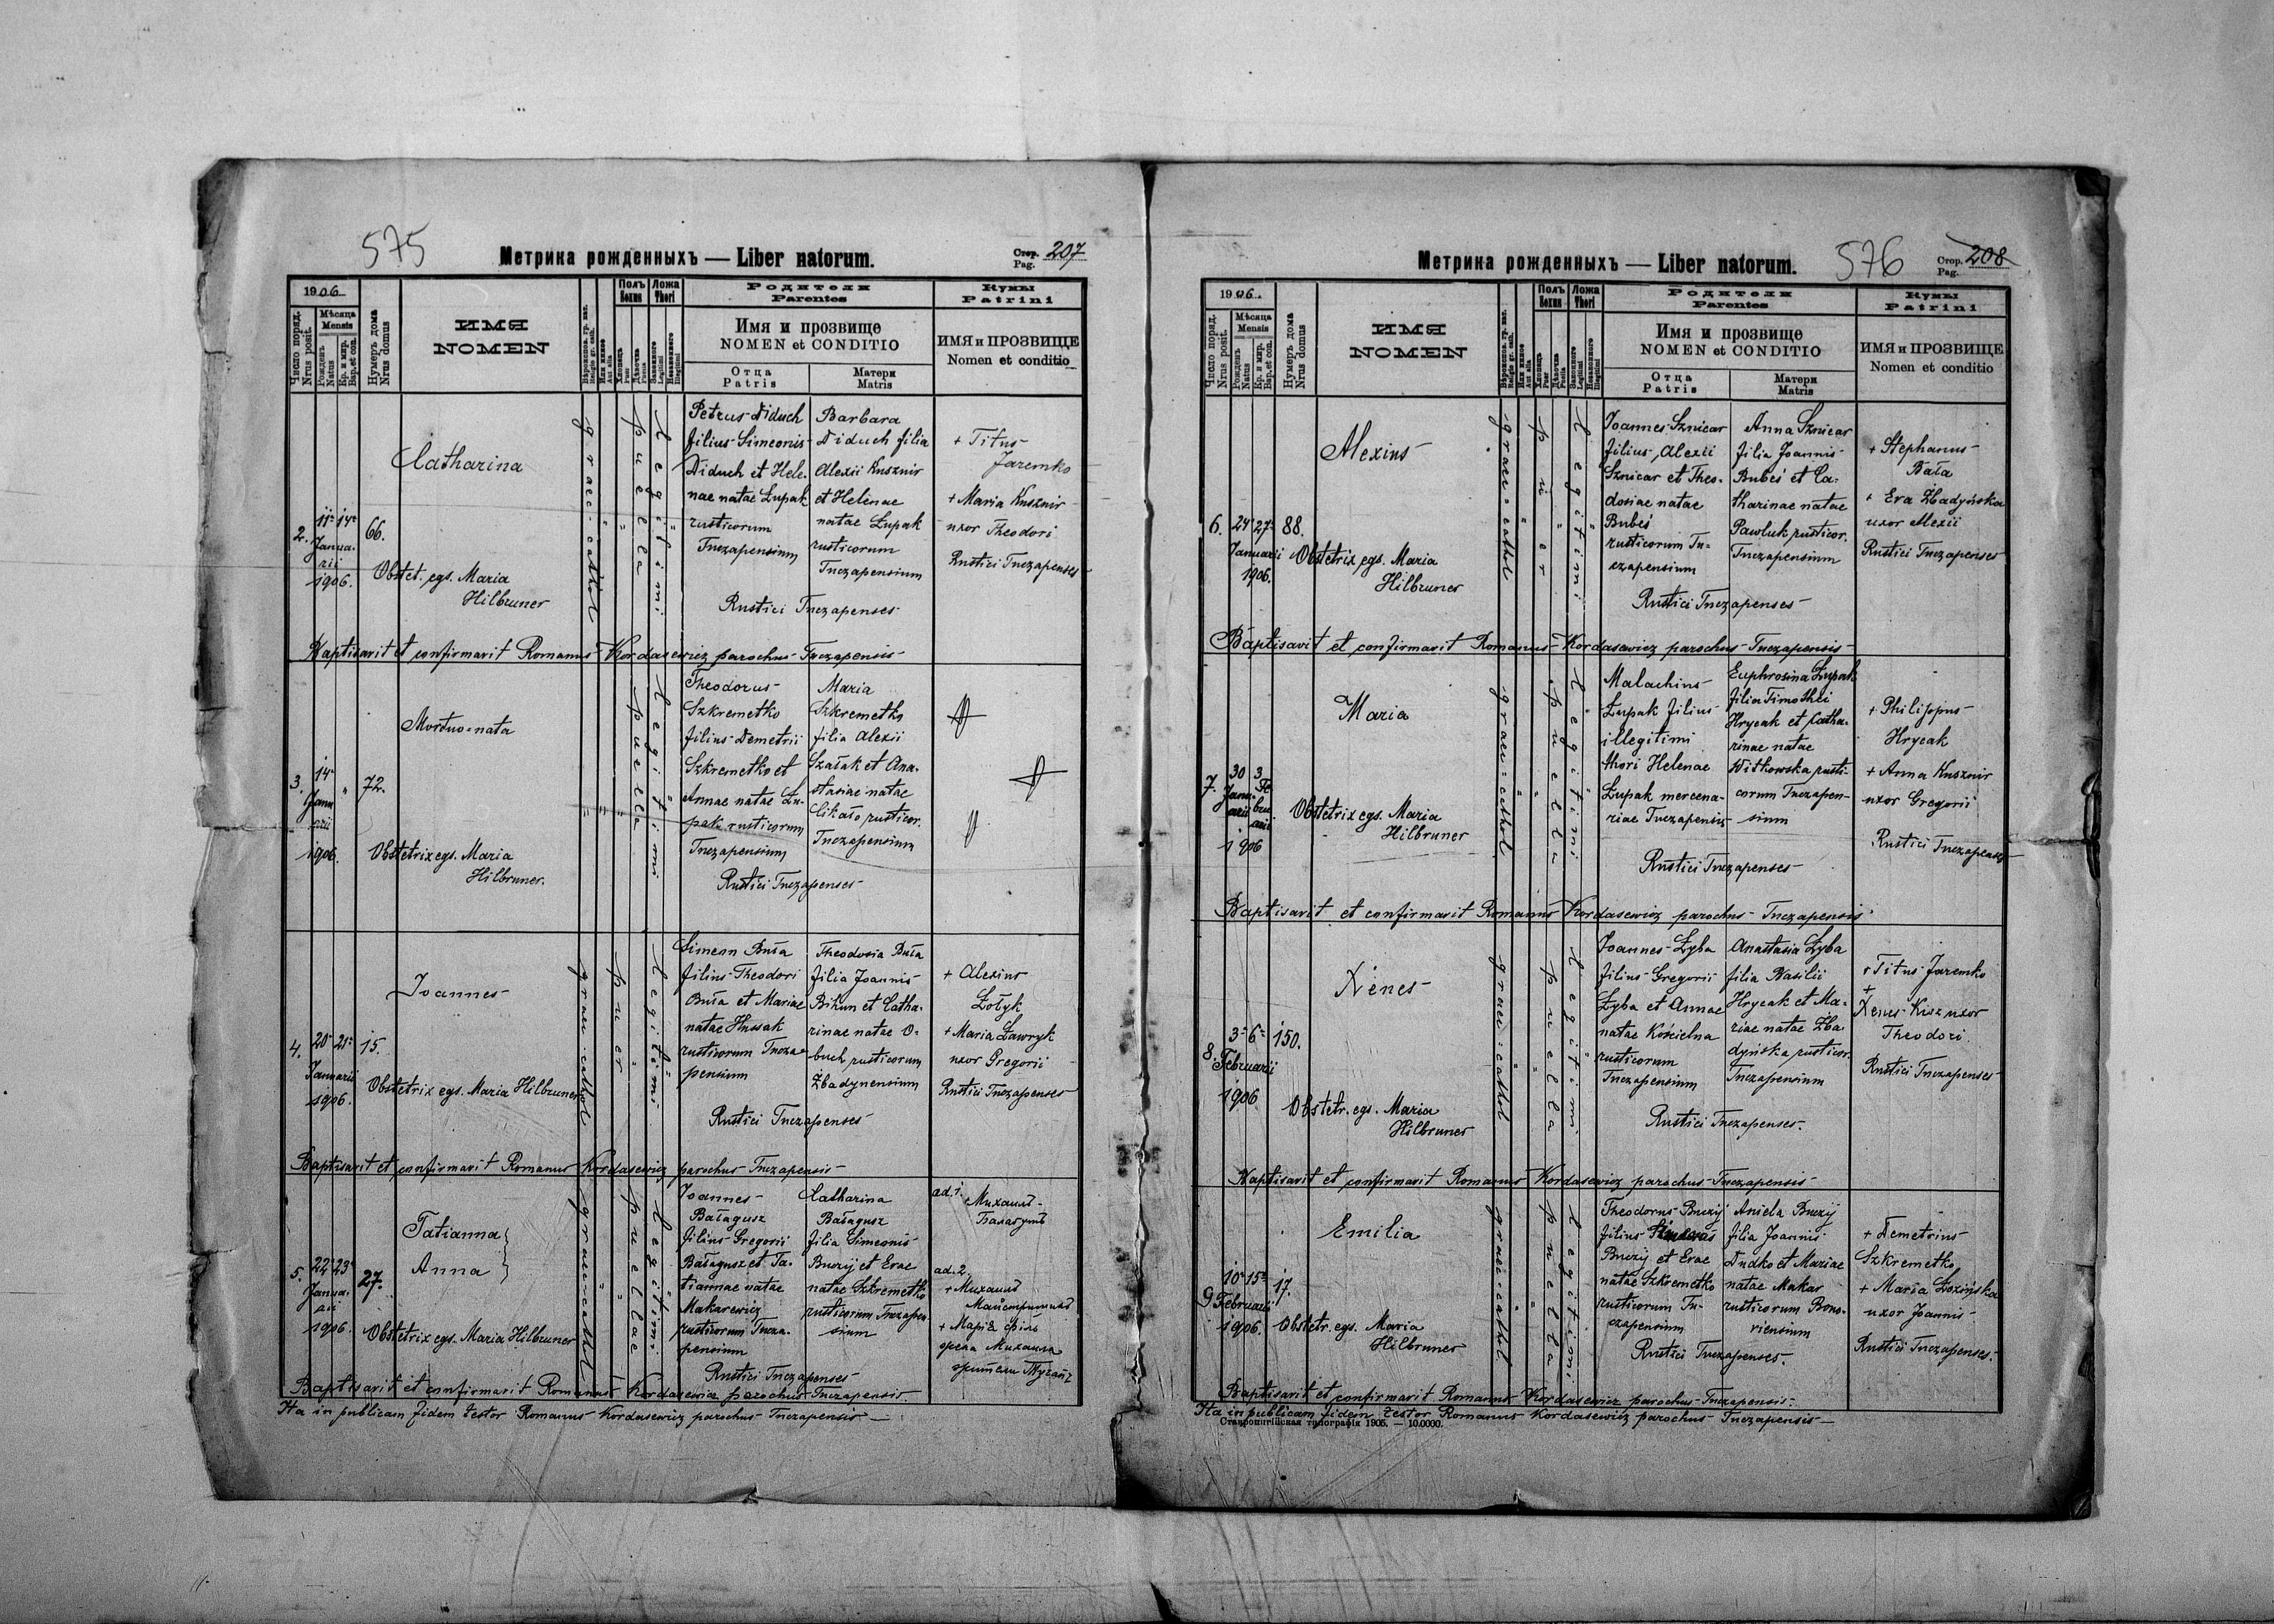 575
Метрика рожденныхъ — Liber natorum.
Стор. Pag. 207
1906
Число поряд. Nrus posit.
Мѣсяца Mensis
Рожденъ Natus
Кр. и мир. Bap. et con.
Нумеръ дома Nrus domus
ИМЯ
NOMEN
Полъ Sexus
Ложа Thori
Хлопець Puer
Дѣвочка Puella
Законного Legitimi
Незаконного Illegitimi
Родители
Parentes
Имя и прозвище
NOMEN et CONDITIO
Отца
Patris
Матери
Matris
Кумы
Patrini
ИМЯ и ПРОЗВИЩЕ
Nomen et conditio
2.
11. 14.
Janua-
rii
1906.
66.
Catharina
Obstet. egs. Maria
Hilbruner
graec-cathol
puella
legitimi
Petrus Diduch
filius Simeonis
Diduch et Hele-
nae natae Łupak
rusticorum
Tuczapensium
Barbara
Diduch filia
Alexii Kusznir
et Helenae
natae Łupak
rusticorum
Tuczapensium
Rustici Tuczapenses
+ Titus
Jaremko
+ Maria Kusznir
uxor Theodori
Rustici Tuczapenses
Baptisavit et confirmavit Romanus Kordasewicz parochus Tuczapensis
3.
14.
Janu
arii
1906.
"
72.
Mortuo-nata
Obstetrix egs. Maria
Hilbruner.
puella
legitimi
Theodorus
Szkremetko
filius Demetrii
Szkremetko et
Annae natae Łu-
pak rusticorum
Tuczapensium
Maria
Szkremetko
filia Alexii
Szałak et Ana-
stasiae natae
rusticor.
Tuczapensium
Rustici Tuczapenses
4.
20. 21.
Januarii
1906.
15.
Joannes
Obstetrix egs. Maria Hilbruner
graeci-cathol
puer
legitimi
Simeon Buła
filius Theodori
Buła et Mariae
natae Hussak
rusticorum Tucza-
pensium
Theodosia Buła
filia Joannis
Bikun et Catha-
rinae natae O-
buch rusticorum
Żbadynensium
Rustici Tuczapenses
+ Alexius
Żołyk
+ Maria Ławryk
uxor Gregorii
Rustici Tuczapenses
Baptisavit et confirmavit Romanus Kordasewicz parochus Tuczapensis
5.
22. 23.
Janua-
rii
1906.
27.
Tatianna
Anna
Obstetrix egs. Maria Hilbruner
graeci-cathol
puellae
legitimi
Joannes
Bałagusz
filius Gregorii
Bałagusz et Ta-
tiannae natae
Makarewicz
rusticorum Tucza-
pensium
Catharina
Bałagusz
filia Simeonis
Buczij et Evae
natae Szkremetko
rusticorum Tuczapen-
sium
Rustici Tuczapenses
ad. 1.
Михаилъ
ad. 2.
+ Михаилъ
+ Марія
Михаила
Baptisavit et confirmavit Romanus Kordasewicz parochus Tuczapensis.
Ita in publicam fidem testor Romanus Kordasewicz parochus Tuczapensis
Метрика рожденныхъ — Liber natorum.
576
Стор. Pag. 208
1906.
Число поряд. Nrus posit.
Мѣсяца Mensis
Рожденъ Natus
Кр. и мир. Bap. et con.
Нумеръ дома Nrus domus
ИМЯ
NOMEN
Полъ Sexus
Ложа Thori
Хлопець Puer
Дѣвочка Puella
Законного Legitimi
Незаконного Illegitimi
Родители
Parentes
Имя и прозвище
NOMEN et CONDITIO
Отца
Patris
Матери
Matris
Кумы
Patrini
ИМЯ и ПРОЗВИЩЕ
Nomen et conditio
6.
24. 27.
Januarii
1906.
88.
Alexius
Obstetrix egs. Maria
Hilbruner
graeci-cathol
puer
legitimi
Joannes Sznicar
filius Alexii
Sznicar et Theo-
dosiae natae
Bubeś
rusticorum Tu-
czapensium
Anna Sznicar
filia Joannis
Bubeś et Ca-
tharinae natae
Pawluk rusticor.
Tuczapensium
Rustici Tuczapenses
+ Stephanus
Bała
+ Eva Żbadyńska
uxor Alexii
Rustici Tuczapenses
Baptisavit et confirmavit Romanus Kordasewicz parochus Tuczapensis
7.
30 3
Janu- Fe
arii bru
arii
1906
Maria
Obstetrix egs. Maria
Hilbruner
graeci-cathol
puella
legitimi
Malachius
Łupak filius
illegitimi
thori Helenae
Łupak mercena-
riae Tuczapensis
Euphrosina Łupak
filia Timothei
Hrycak et Catha-
rinae natae
Witkowska rusti-
corum Tuczapen-
sium
Rustici Tuczapenses
+ Philippus
Hrycak
+ Anna Kusznir
uxor Gregorii
Rustici Tuczapenses
Baptisavit et confirmavit Romanus Kordasewicz parochus Tuczapensis
8.
3. 6.
Februarii
1906
150.
Xenes
Obstetr. egs. Maria
Hilbruner
graeci-cathol
puella
legitimi
Joannes Zyba
filius Gregorii
Zyba et Annae
natae Kościelna
rusticorum
Tuczapensium
Anastasia Zyba
filia Basilii
Hrycak et Ma-
riae natae Żba-
dyńska rusticor.
Tuczapensium
Rustici Tuczapenses.
+ Titus Jaremko
+
Xenes Kisz uxor
Theodori
Rustici Tuczapenses
Baptisavit et confirmavit Romanus Kordasewicz parochus Tuczapensis
9
10. 15.
Februarii
1906.
17.
Emilia
Obstetr. egs. Maria
Hilbruner
graeci-cathol.
puella
legitimi
Theodorus Buczij
filius
Buczij et Evae
natae Szkremetko
rusticorum Tu-
czapensium
Aniela Buczij
filia Joannis
Dudko et Mariae
natae Makar
rusticorum Bono-
riensium
Rustici Tuczapenses.
+ Demetrius
Szkremetko
+ Maria Łozińska
uxor Joannis
Rustici Tuczapenses.
Baptisavit et confirmavit Romanus Kordasewicz parochus Tuczapensis.
Ita in publicam fidem testor Romanus Kordasewicz parochus Tuczapensis
Ставропигійская типографія 1905. — 10.0000.